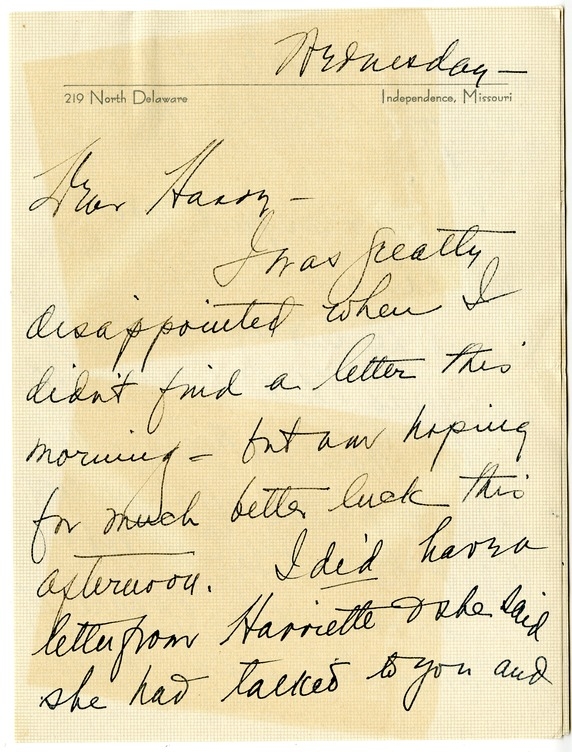 Wednesday—
219 North Delaware Independence, Missouri
Dear Harry—
I was greatly
disappointed when I
didn't find a letter this
morning – but am hoping
for much better luck this
afternoon. I did have a
letter from Harriette & she said
she had talked to you and